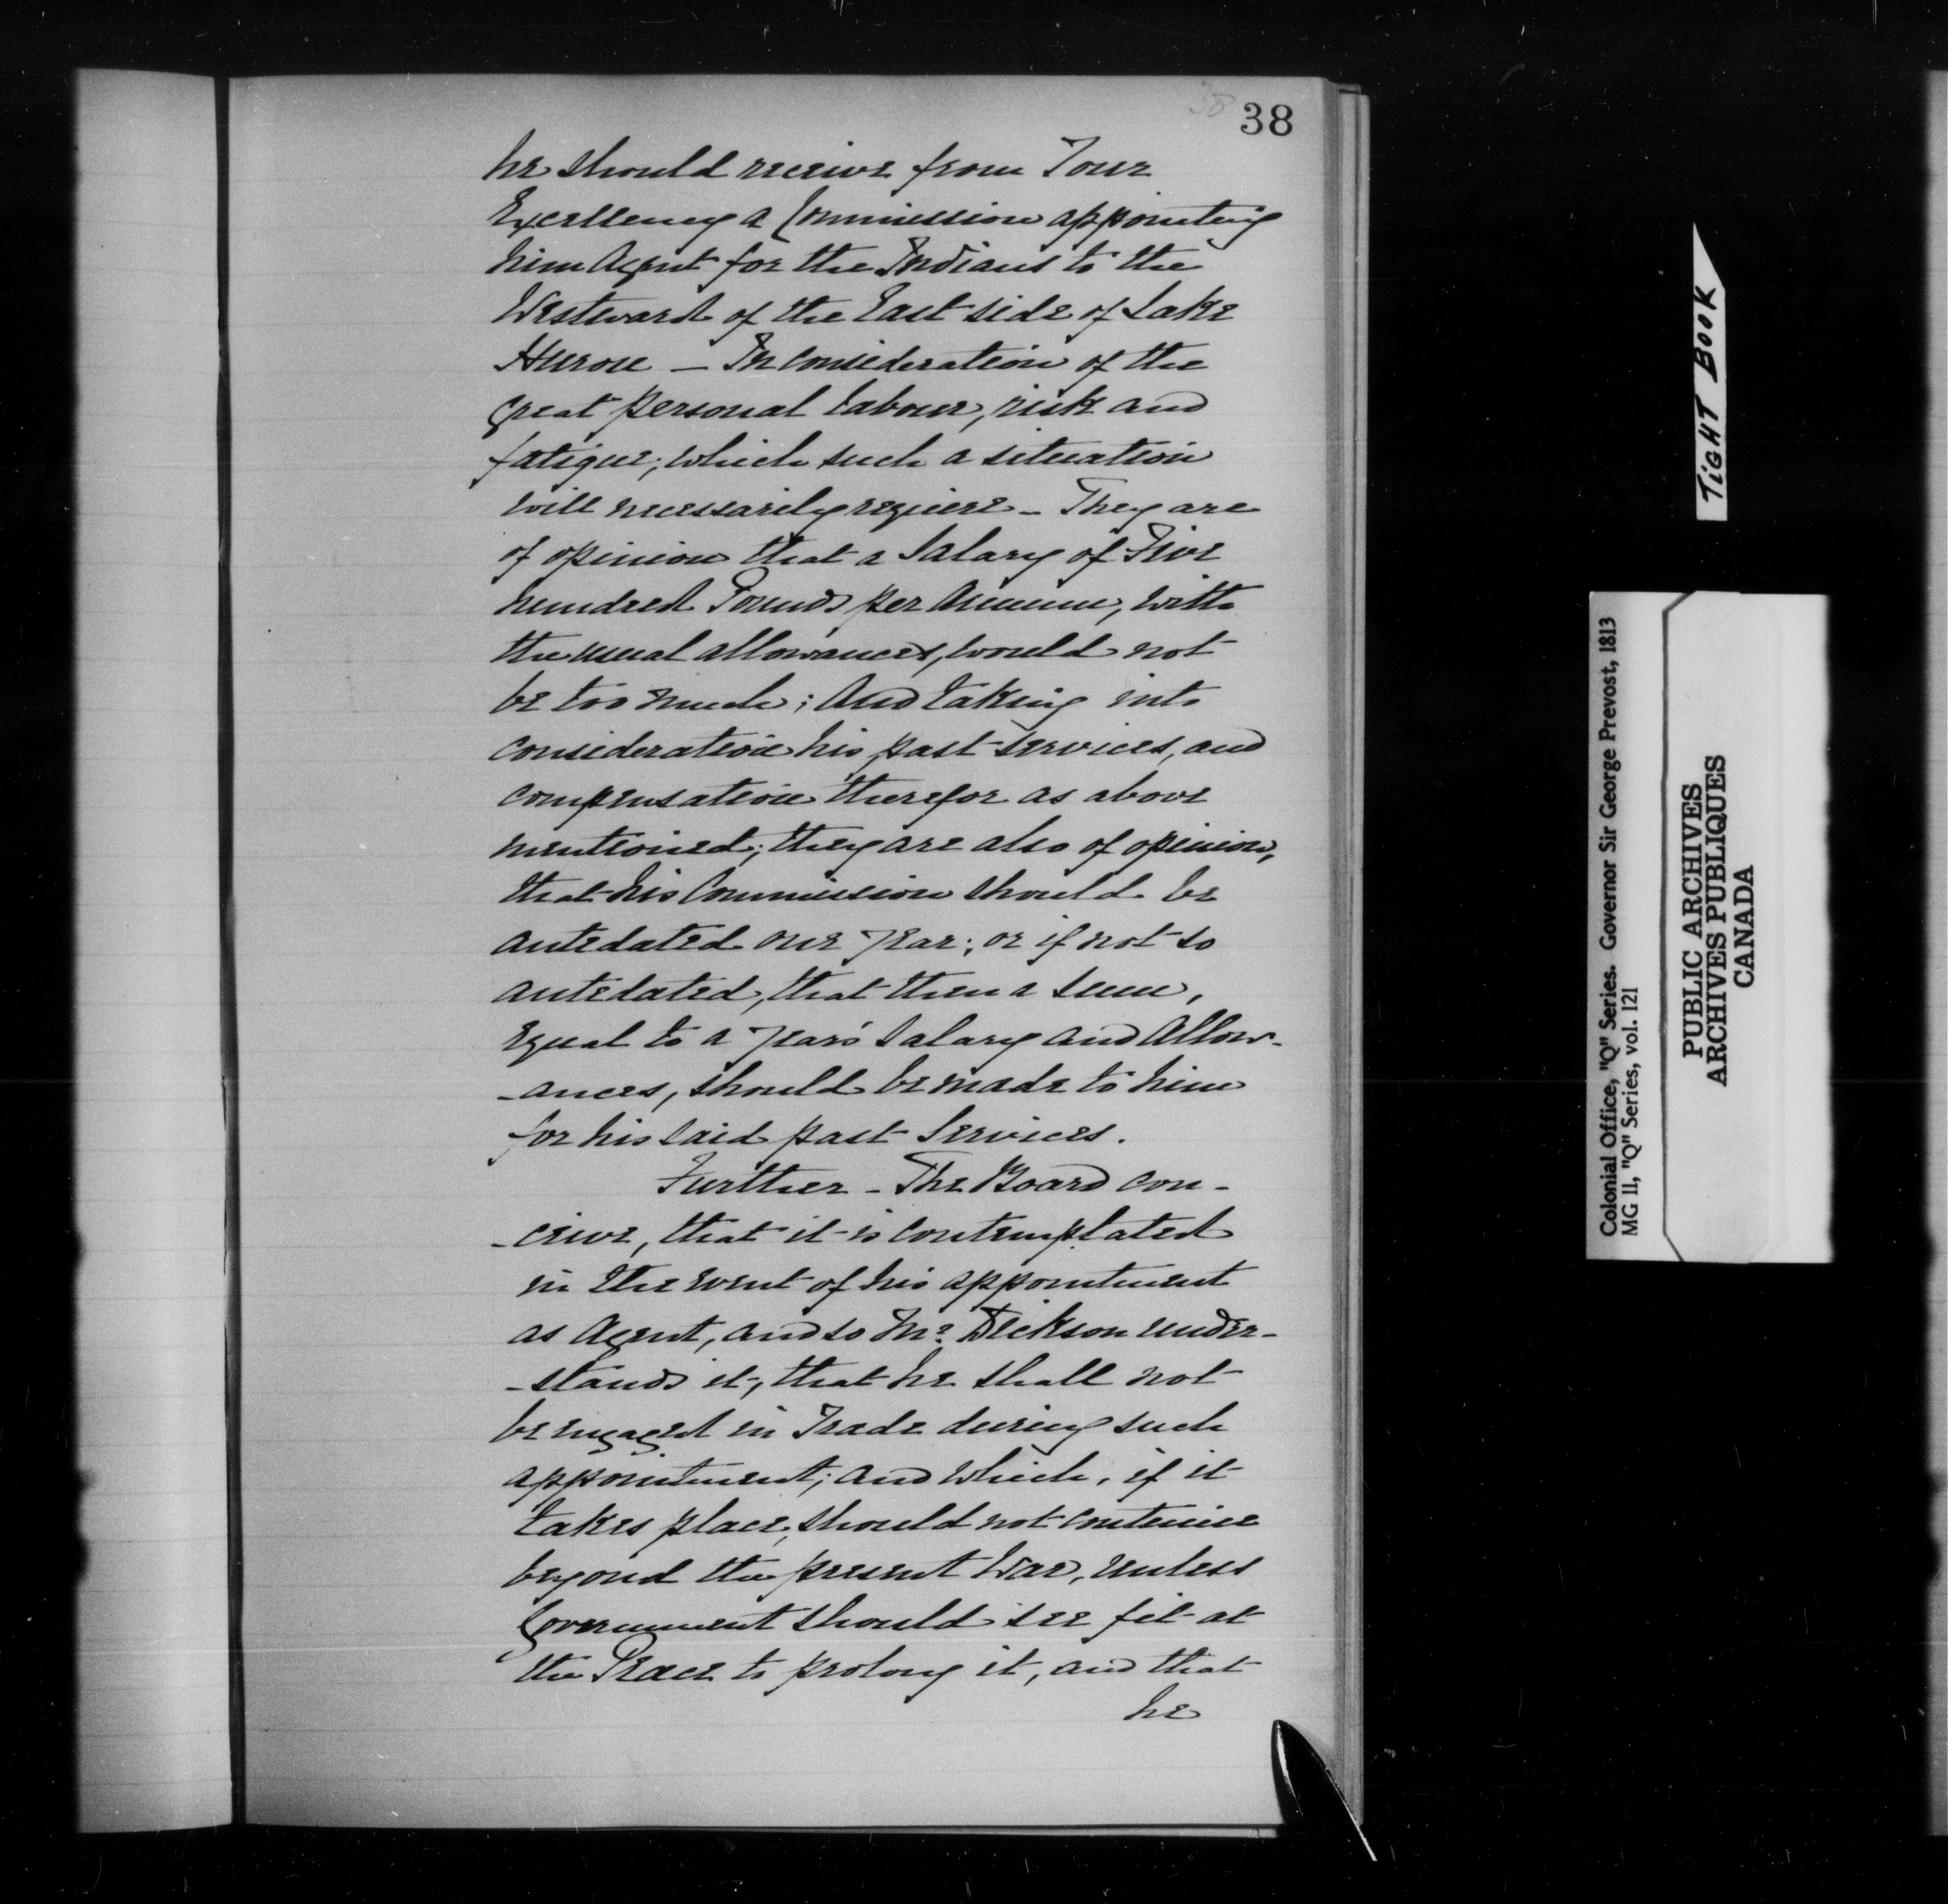 38
38
he should receive from Your
Excellency a Commission appointing
him Agent for the Indians to the
Westward of the East side of Lake
Huron — In consideration of the
great personal labour, risk and
fatigue; which such a situation
will necessarily require – They are
of opinion that a Salary of Five
hundred Pounds per Annum, with
the usual allowances, would not
be too much; And taking into
consideration his past services, and
compensation therefor as above
mentioned; they are also of opinion,
that his Commission should be
antedated one year; or if not so
antedated, that then a sum,
equal to a year's Salary and Allow-
-ances, should be made to him
for his said past Services.
Further – The Board con-
-ceive, that it is contemplated
in the event of his appointment
as Agent, and so Mr. Dickson under-
-stands it, that he shall not
be engaged in Trade during such
appointment; and which, if it
takes place, should not continue
beyond the present War, unless
Government should see fit at
the Peace to prolong it, and that
he
TIGHT BOOK
Colonial Office, "Q" Series. Governor Sir George Prevost, 1813
MG 11, "Q" Series, vol. 121
PUBLIC ARCHIVES
ARCHIVES PUBLIQUES
CANADA